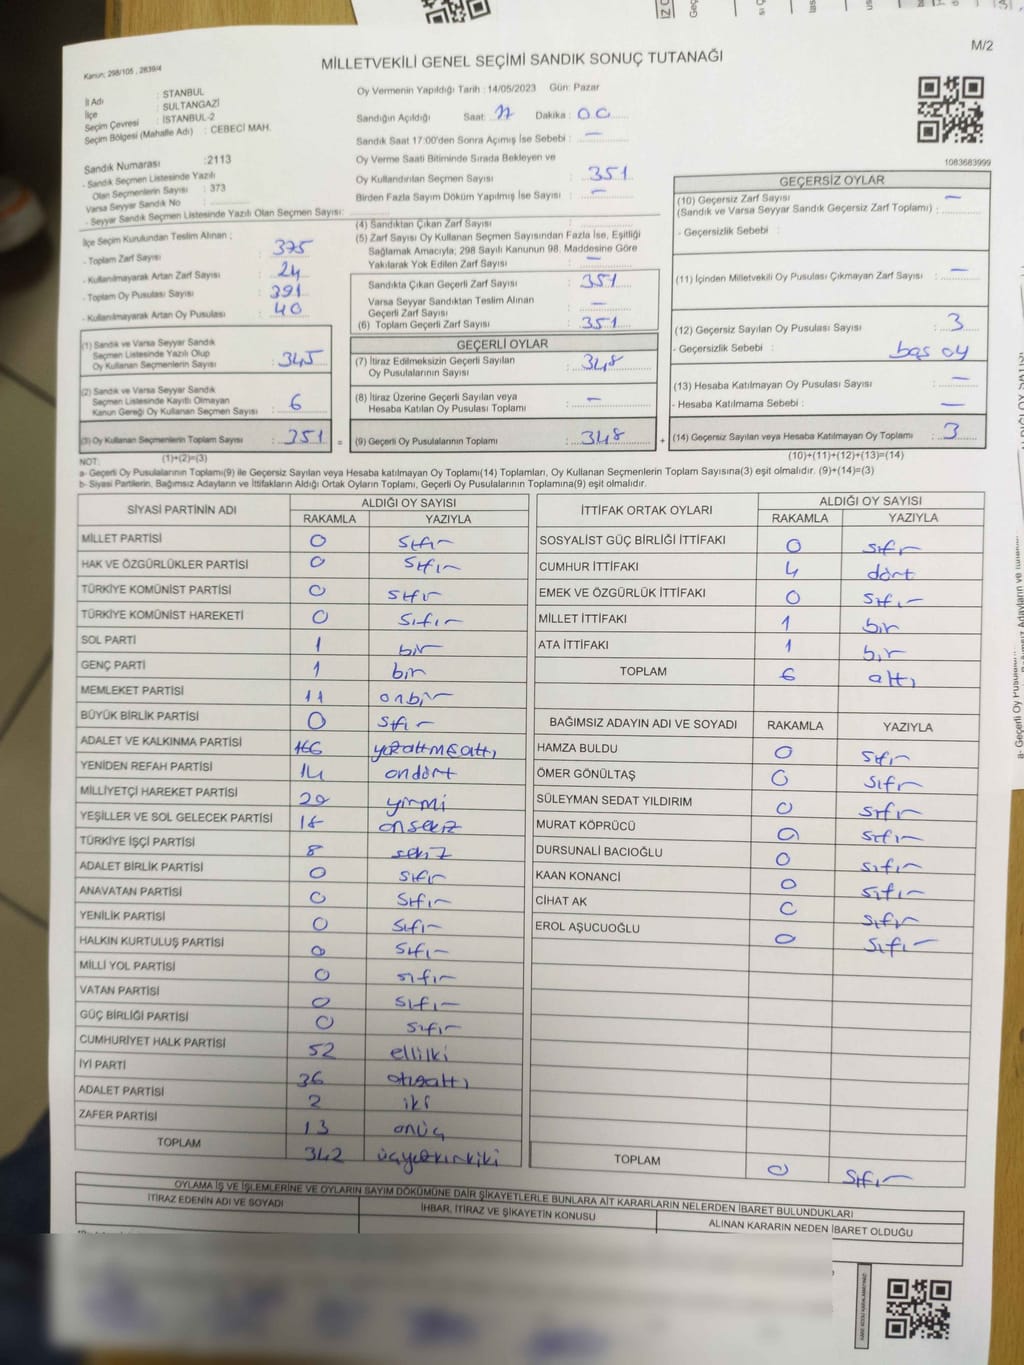 M/2
MİLLETVEKİLİ GENEL SEÇİMİ SANDIK SONUÇ TUTANAĞI
Kanun; 298/105 , 2839/4
İl Adı : STANBUL
İlçe : SULTANGAZİ
Seçim Çevresi : İSTANBUL-2
Seçim Bölgesi (Mahalle Adı) : CEBECİ MAH.
Sandık Numarası :2113
- Sandık Seçmen Listesinde Yazılı
Olan Seçmenlerin Sayısı : 373
Varsa Seyyar Sandık No :
- Seyyar Sandık Seçmen Listesinde Yazılı Olan Seçmen Sayısı:
İlçe Seçim Kurulundan Teslim Alınan ;
- Toplam Zarf Sayısı : 375
- Kullanılmayarak Artan Zarf Sayısı : 24
- Toplam Oy Pusulası Sayısı : 391
- Kullanılmayarak Artan Oy Pusulası : 40
(1) Sandık ve Varsa Seyyar Sandık
Seçmen Listesinde Yazılı Olup
Oy Kullanan Seçmenlerin Sayısı : 345
(2) Sandık ve Varsa Seyyar Sandık
Seçmen Listesinde Kayıtlı Olmayan
Kanun Gereği Oy Kullanan Seçmen Sayısı : 6
(3) Oy Kullanan Seçmenlerin Toplam Sayısı : 351 =
(1)+(2)=(3)
Oy Vermenin Yapıldığı Tarih : 14/05/2023 Gün: Pazar
Sandığın Açıldığı Saat: 17 Dakika : 00
Sandık Saat 17:00'den Sonra Açımış İse Sebebi : —
Oy Verme Saati Bitiminde Sırada Bekleyen ve
Oy Kullandırılan Seçmen Sayısı : 351
Birden Fazla Sayım Döküm Yapılmış İse Sayısı : —
(4) Sandıktan Çıkan Zarf Sayısı :
(5) Zarf Sayısı Oy Kullanan Seçmen Sayısından Fazla İse, Eşitliği
Sağlamak Amacıyla; 298 Sayılı Kanunun 98. Maddesine Göre
Yakılarak Yok Edilen Zarf Sayısı : —
Sandıkta Çıkan Geçerli Zarf Sayısı : 351
Varsa Seyyar Sandıktan Teslim Alınan
Geçerli Zarf Sayısı : —
(6) Toplam Geçerli Zarf Sayısı : 351
GEÇERLİ OYLAR
(7) İtiraz Edilmeksizin Geçerli Sayılan
Oy Pusulalarının Sayısı : 348
(8) İtiraz Üzerine Geçerli Sayılan veya
Hesaba Katılan Oy Pusulası Toplamı : —
(9) Geçerli Oy Pusulalarının Toplamı : 348 +
1083683999
GEÇERSİZ OYLAR
(10) Geçersiz Zarf Sayısı
(Sandık ve Varsa Seyyar Sandık Geçersiz Zarf Toplamı) : —
- Geçersizlik Sebebi :
(11) İçinden Milletvekili Oy Pusulası Çıkmayan Zarf Sayısı : —
(12) Geçersiz Sayılan Oy Pusulası Sayısı : 3
- Geçersizlik Sebebi : boş oy
(13) Hesaba Katılmayan Oy Pusulası Sayısı : —
- Hesaba Katılmama Sebebi : —
(14) Geçersiz Sayılan veya Hesaba Katılmayan Oy Toplamı : 3
(10)+(11)+(12)+(13)=(14)
NOT:
a- Geçerli Oy Pusulalarının Toplamı(9) ile Geçersiz Sayılan veya Hesaba katılmayan Oy Toplamı(14) Toplamları, Oy Kullanan Seçmenlerin Toplam Sayısına(3) eşit olmalıdır. (9)+(14)=(3)
b- Siyasi Partilerin, Bağımsız Adayların ve İttifakların Aldığı Ortak Oyların Toplamı, Geçerli Oy Pusulalarının Toplamına(9) eşit olmalıdır.
SİYASİ PARTİNİN ADI ALDIĞI OY SAYISI
RAKAMLA YAZIYLA
MİLLET PARTİSİ 0 sıfır
HAK VE ÖZGÜRLÜKLER PARTİSİ 0 sıfır
TÜRKİYE KOMÜNİST PARTİSİ 0 sıfır
TÜRKİYE KOMÜNİST HAREKETİ 0 sıfır
SOL PARTİ 1 bir
GENÇ PARTİ 1 bir
MEMLEKET PARTİSİ 11 onbir
BÜYÜK BİRLİK PARTİSİ 0 sıfır
ADALET VE KALKINMA PARTİSİ 166 yüzaltmışaltı
YENİDEN REFAH PARTİSİ 14 ondört
MİLLİYETÇİ HAREKET PARTİSİ 20 yirmi
YEŞİLLER VE SOL GELECEK PARTİSİ 18 onsekiz
TÜRKİYE İŞÇİ PARTİSİ 8 sekiz
ADALET BİRLİK PARTİSİ 0 sıfır
ANAVATAN PARTİSİ 0 sıfır
YENİLİK PARTİSİ 0 sıfır
HALKIN KURTULUŞ PARTİSİ 0 sıfır
MİLLİ YOL PARTİSİ 0 sıfır
VATAN PARTİSİ 0 sıfır
GÜÇ BİRLİĞİ PARTİSİ 0 sıfır
CUMHURİYET HALK PARTİSİ 52 elliiki
İYİ PARTİ 36 otuzaltı
ADALET PARTİSİ 2 iki
ZAFER PARTİSİ 13 onüç
TOPLAM 342 üçyüzkırkiki
İTTİFAK ORTAK OYLARI ALDIĞI OY SAYISI
RAKAMLA YAZIYLA
SOSYALİST GÜÇ BİRLİĞİ İTTİFAKI 0 sıfır
CUMHUR İTTİFAKI 4 dört
EMEK VE ÖZGÜRLÜK İTTİFAKI 0 sıfır
MİLLET İTTİFAKI 1 bir
ATA İTTİFAKI 1 bir
TOPLAM 6 altı
BAĞIMSIZ ADAYIN ADI VE SOYADI RAKAMLA YAZIYLA
HAMZA BULDU 0 sıfır
ÖMER GÖNÜLTAŞ 0 sıfır
SÜLEYMAN SEDAT YILDIRIM 0 sıfır
MURAT KÖPRÜCÜ 0 sıfır
DURSUNALİ BACIOĞLU 0 sıfır
KAAN KONANCİ 0 sıfır
CİHAT AK 0 sıfır
EROL AŞUCUOĞLU 0 sıfır
TOPLAM 0 sıfır
OYLAMA İŞ VE İŞLEMLERİNE VE OYLARIN SAYIM DÖKÜMÜNE DAİR ŞİKAYETLERLE BUNLARA AİT KARARLARIN NELERDEN İBARET BULUNDUKLARI
İTİRAZ EDENİN ADI VE SOYADI İHBAR, İTİRAZ VE ŞİKAYETİN KONUSU ALINAN KARARIN NEDEN İBARET OLDUĞU